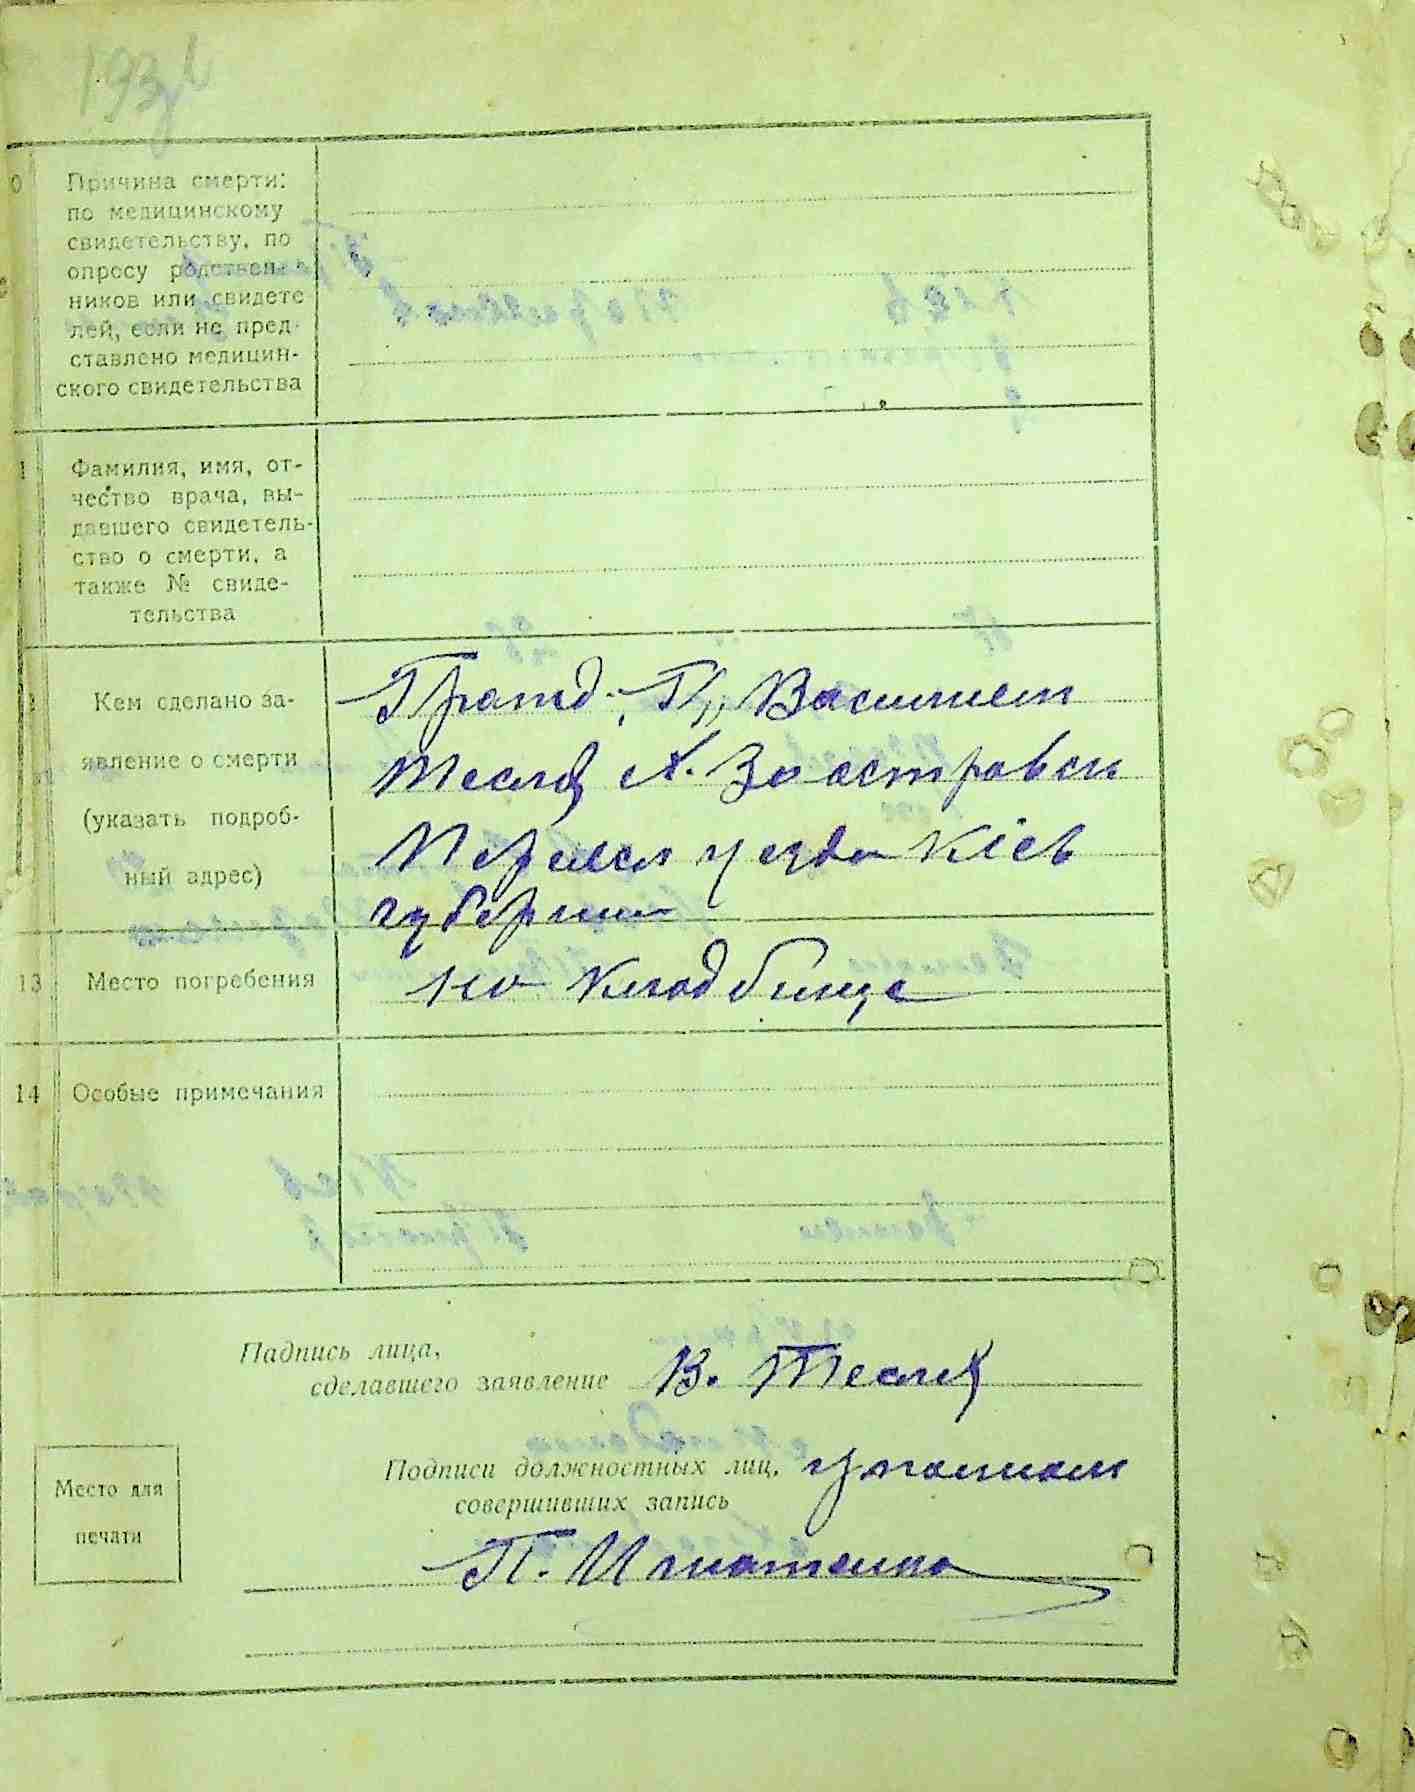 193
Причина смерти:
по медицинскому
свидетельству, по
опросу родствен-
ников или свидете
лей, если не пред-
ставлено медицин-
ского свидетельства
Фамилия, имя, от-
чество врача, вы-
давшего свидетель-
ство о смерти, а
также № свиде-
тельства
Кем сделано за-
явление о смерти
(указать подроб-
ный адрес)
Гражд. Василием
Теслей х. Заостровки
уезда Кіев
губернии
13 Место погребения
на Кладбище
14 Особые примечания
Падпись лица,
сделавшего заявление В. Тесля
Подписи должностных лиц,
совершивших запись
П. Игнатенко
Место для
печати